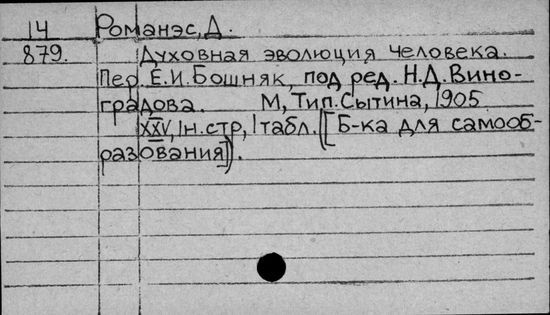 14 Романэс, Д.
879. Духовная эволюция человека.
Пер. Е.И. Бошняк, под ред. Н.Д. Вино-
градова. М, Тип. Сытина, 1905.
XXV, 1н. стр, 1 табл. ([Б-ка для самооб-
разования]).